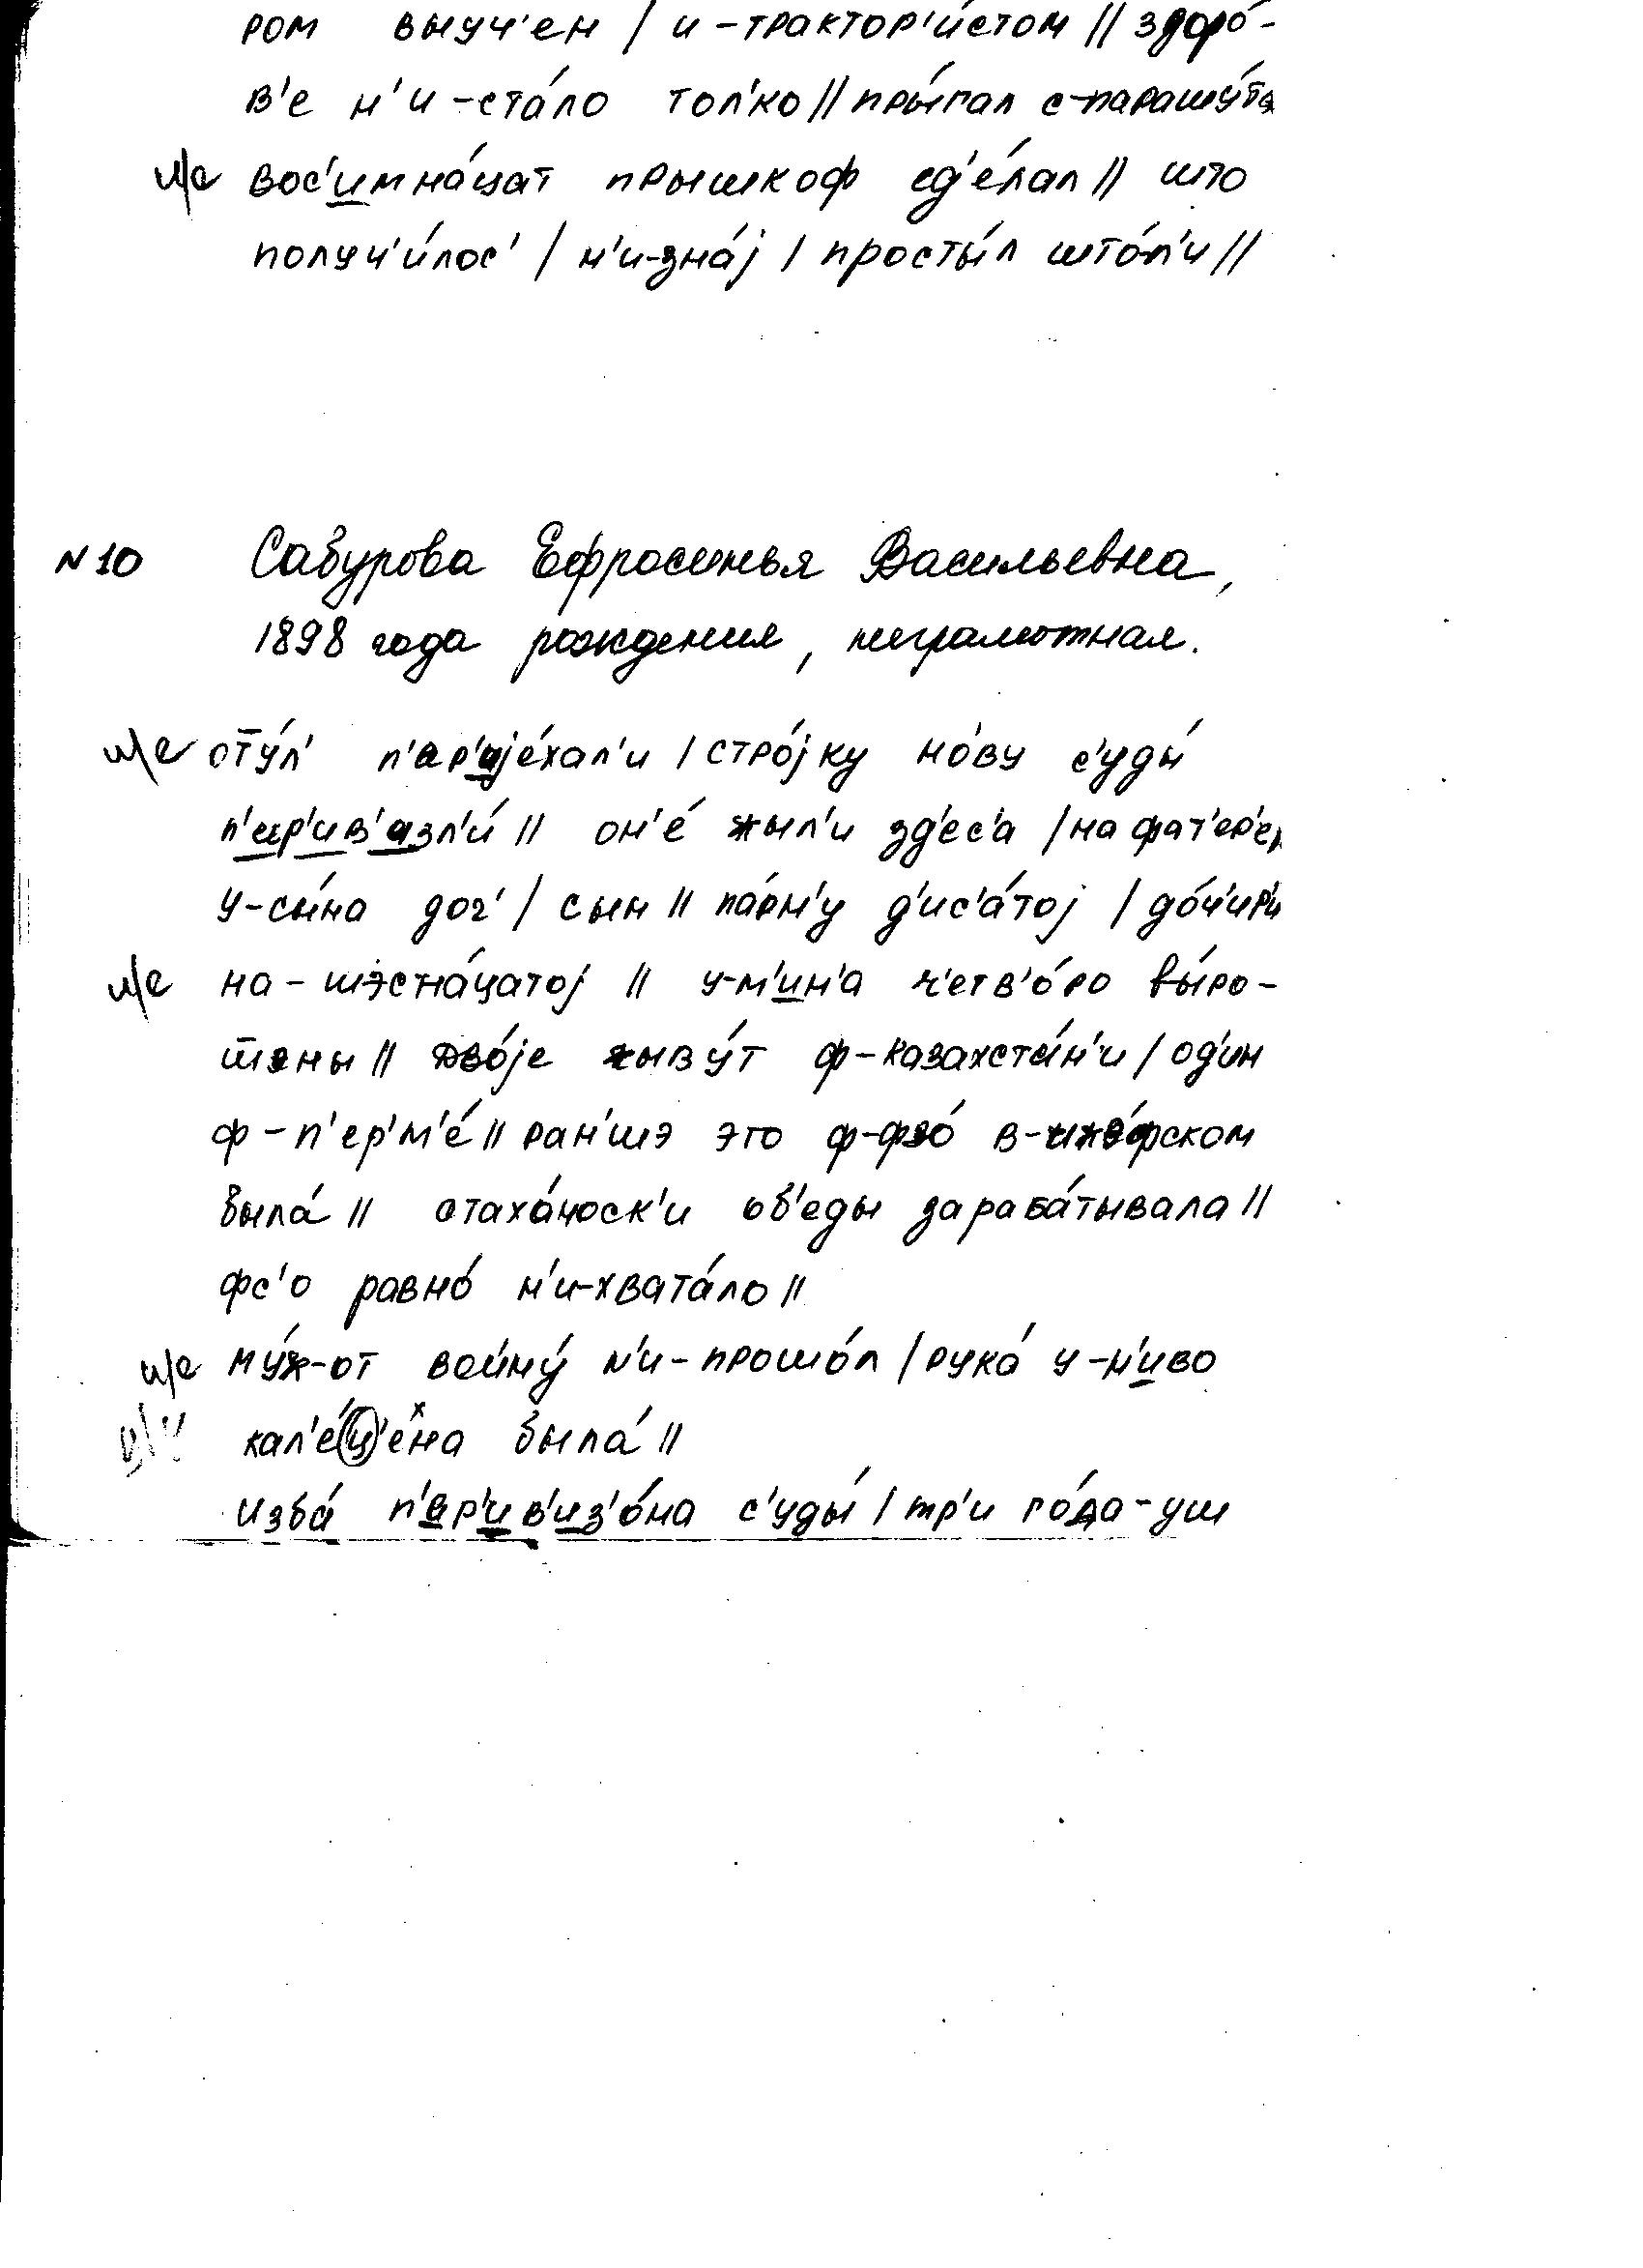 ром выуч'ен / и-трактор'и́стом // здоро́-
в'е н'и-ста́ло тол'ко // пры́гал с-парашу́та
и/е вос'имна́цат прышкоф сд'е́лал // што
получ'и́лос' / н'и-зна́j / просты́л што́л'и //
N10 Сабурова Ефросинья Васильевна,
1898 года рождения, неграмотная.
и/е оту́л' п'ер'иjе́хал'и / стро́jку но́ву с'уды́
п'ер'ив'азл'и́ // он'е́ жыл'и зд'ес'а / на фат'ер'е,
у-сы́на доч' / сын // па́рн'у д'ис'а́тоj / до́ч'ир'и
и/е на-шэсна́цатоj // у-м'ин'а ч'етв'о́ро вы́ро-
шэны // дво́jе жыву́т ф-казахста́н'и / од'ин
ф-п'ер'м'е́ // ран'шэ это ф-фзо́ в-ижэ́фском
была́ // стаха́носк'и об'еды зараба́тывала //
фс'о равно́ н'и-хвата́ло //
и/е му́ж-от войну́ н'и-прошо́л / рука́ у-н'иво
кал'е́ц'е́на была́ //
изба́ п'ер'ив'из'о́на с'уды́ / тр'и го́да-уш